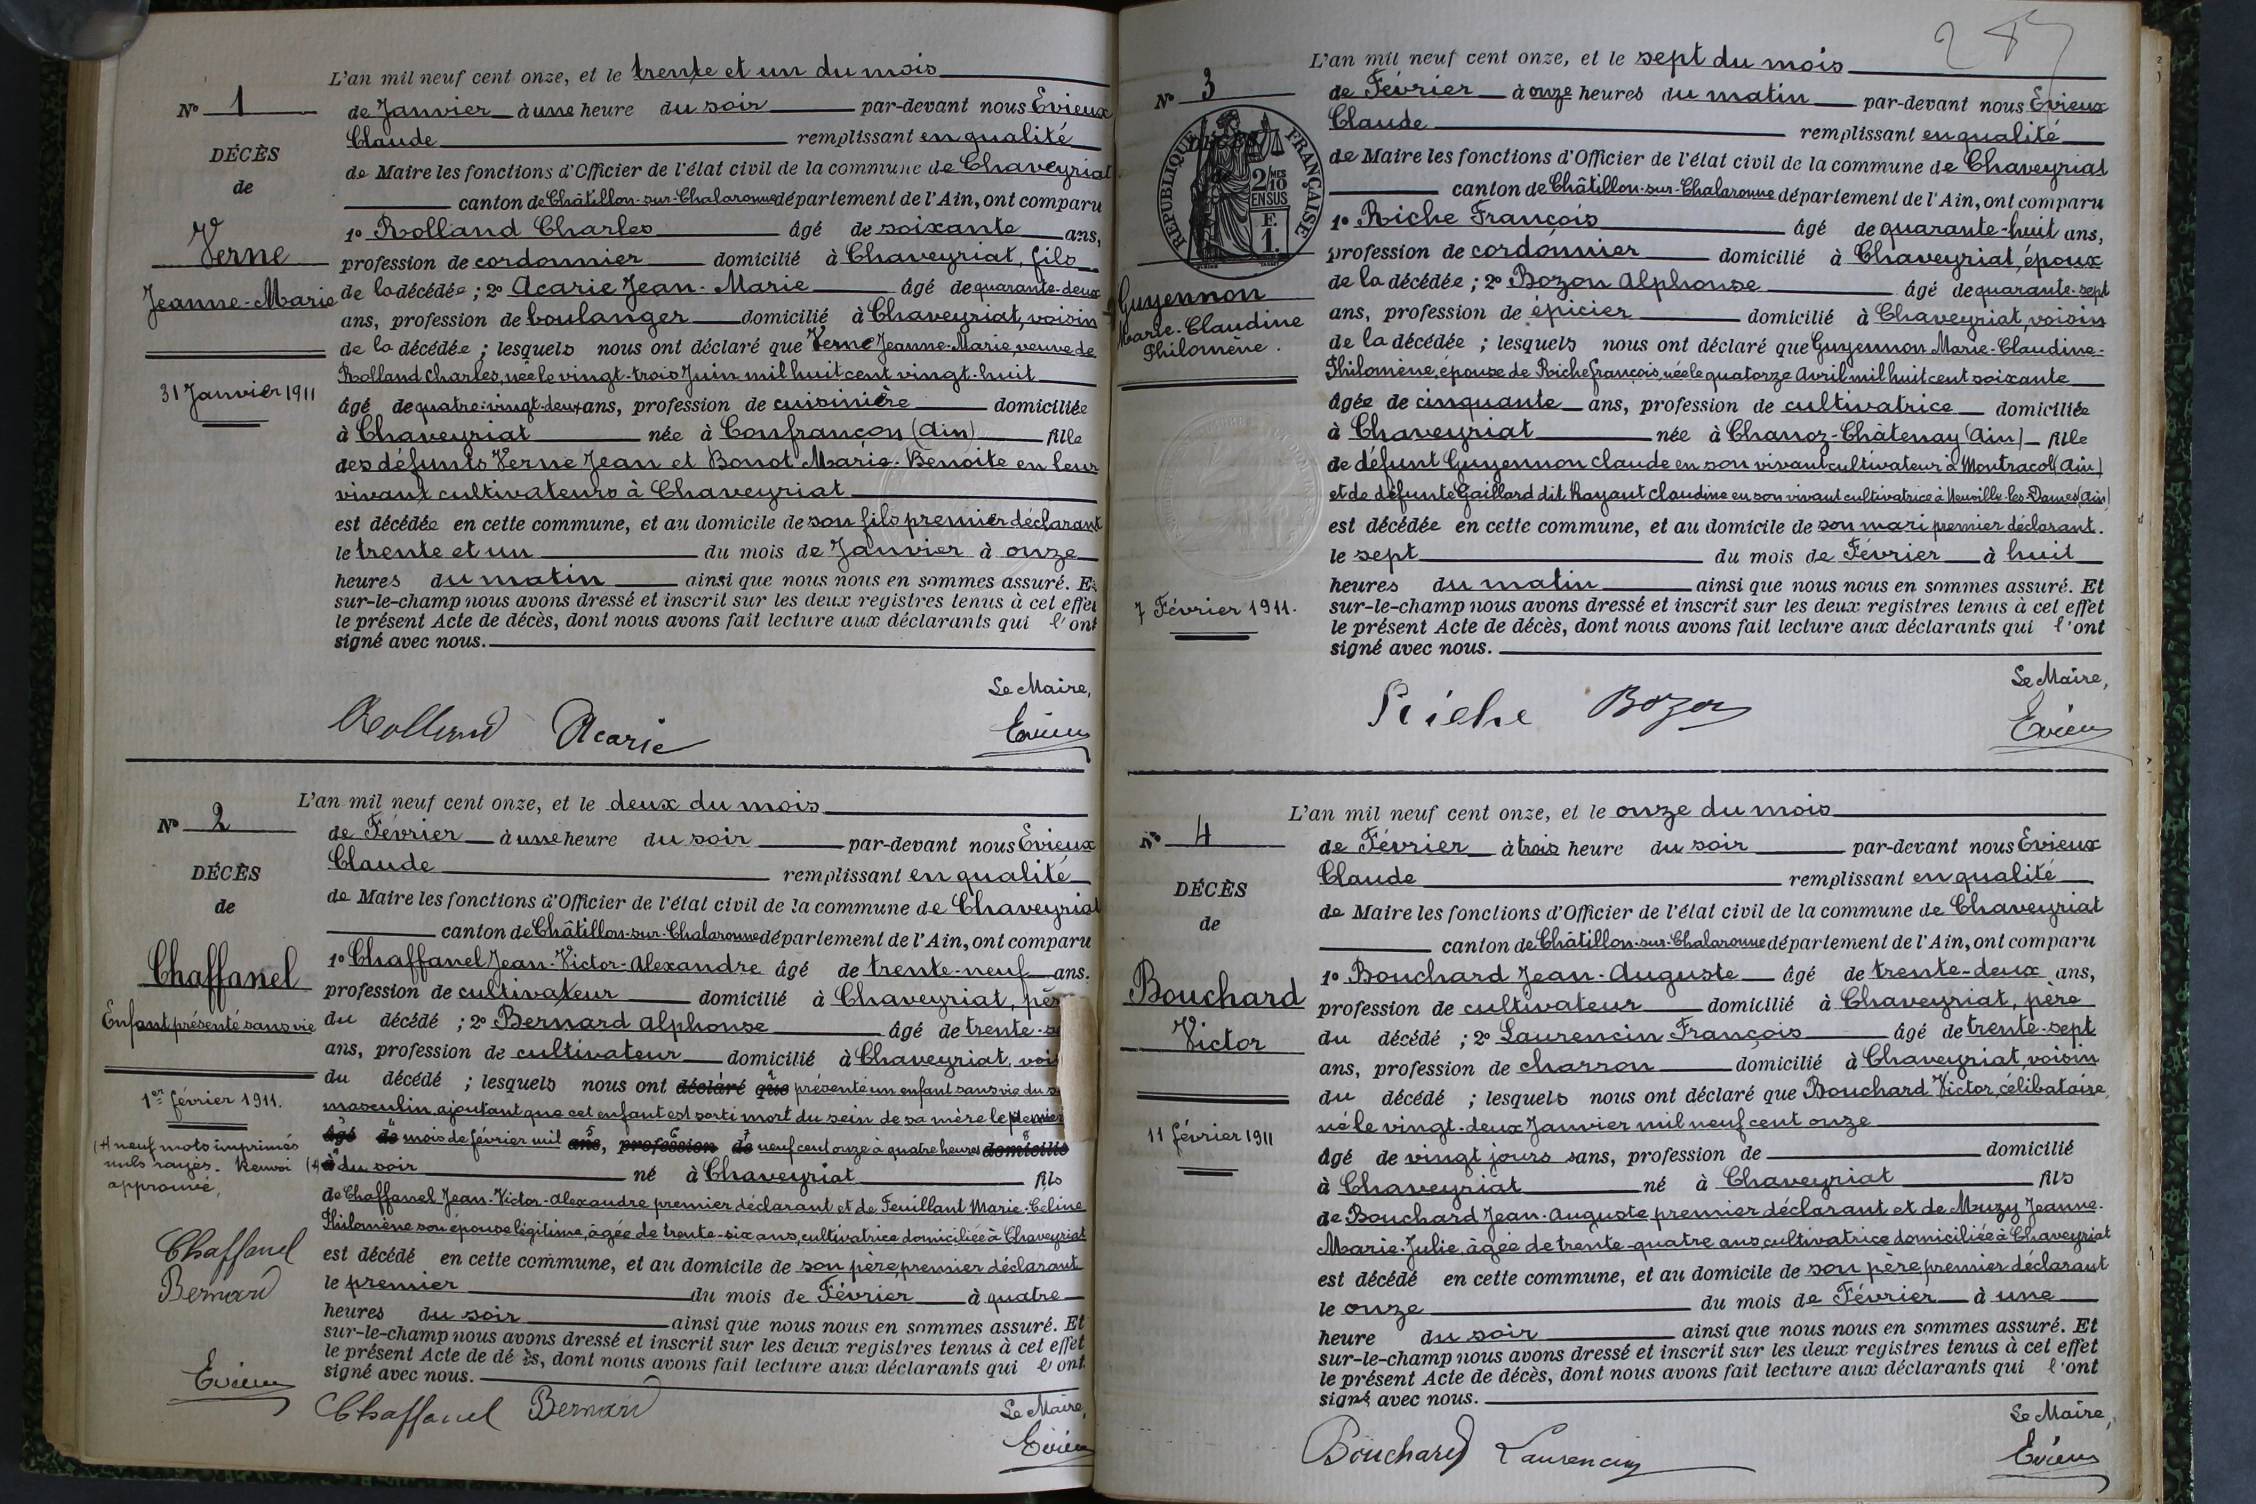 L'an mil neuf cent onze, et le trente et un du mois
N° 1
de Janvier à une heure du soir par-devant nous Evieux
Claude remplissant en qualité
DÉCÈS
de Maire les fonctions d'Officier de l'état civil de la commune de Chaveyriat
de
canton de Châtillon-sur-Chalaronne département de l'Ain, ont comparu
1° Rolland Charles âgé de soixante ans,
Verne
profession de cordonnier domicilié à Chaveyriat, fils
Jeanne-Marie
de la décédée ; 2° Acarie Jean-Marie âgé de quarante-deux
ans, profession de boulanger domicilié à Chaveyriat, voisin
de la décédée ; lesquels nous ont déclaré que Verne Jeanne-Marie, veuve de
Rolland Charles, née le vingt-trois Juin mil huit cent vingt-huit
31 Janvier 1911
âgé de quatre-vingt-deux ans, profession de cuisinière domiciliée
à Chaveyriat née à Confrançon (Ain) fille
des défunts Verne Jean et Bonot Marie-Benoite en leur
vivant cultivateurs à Chaveyriat
est décédée en cette commune, et au domicile de son fils premier déclarant
le trente et un du mois de Janvier à onze
heures du matin ainsi que nous nous en sommes assuré. Et
sur-le-champ nous avons dressé et inscrit sur les deux registres tenus à cet effet
le présent Acte de décès, dont nous avons fait lecture aux déclarants qui l'ont
signé avec nous.
Le Maire,
Rolland Acarie Evieux
L'an mil neuf cent onze, et le deux du mois
N° 2
de Février à une heure du soir par-devant nous Evieux
Claude remplissant en qualité
DÉCÈS
de Maire les fonctions d'Officier de l'état civil de la commune de Chaveyriat
de
canton de Châtillon-sur-Chalaronne département de l'Ain, ont comparu
1° Chaffanel Jean-Victor-Alexandre âgé de trente-neuf ans.
Chaffanel
profession de cultivateur domicilié à Chaveyriat, pèr
Enfant présenté sans vie
du décédé ; 2° Bernard Alphonse âgé de trente-s
ans, profession de cultivateur domicilié à Chaveyriat, vois
du décédé ; lesquels nous ont déclaré que présenté un enfant sans vie du s
1er février 1911.
masculin, ajoutant que cet enfant est sorti mort du sein de sa mère le premier
âgé de mois de février mil ans, profession de neuf cent onze à quatre heures domicilié
(+) neuf mots imprimés
nuls rayés. Renvoi
approuvé,
(+) à du soir né à Chaveyriat fils
de Chaffanel Jean-Victor-Alexandre premier déclarant et de Feuillant Marie-Celine
Philomène son épouse légitime, âgée de trente-six ans, cultivatrice domiciliée à Chaveyriat
Chaffanel
est décédé en cette commune, et au domicile de son père, premier déclarant
Bernard
le premier du mois de Février à quatre
heures du soir ainsi que nous nous en sommes assuré. Et
sur-le-champ nous avons dressé et inscrit sur les deux registres tenus à cet effet
le présent Acte de dé ès, dont nous avons fait lecture aux déclarants qui l'ont
Evieux
signé avec nous.
Le Maire,
Chaffanel Bernard Evieux
287
L'an mil neuf cent onze, et le sept du mois
N° 3
de Février à onze heures du matin par-devant nous Evieux
Claude remplissant en qualité
DÉCÈS
RÉPUBLIQUE FRANÇAISE
2/10 MES
EN SUS
F.
1.
de Maire les fonctions d'Officier de l'état civil de la commune de Chaveyriat
canton de Châtillon-sur-Chalaronne département de l'Ain, ont comparu
1° Riche François âgé de quarante-huit ans,
profession de cordonnier domicilié à Chaveyriat, époux
Guyennon
Marie-Claudine
Philomène.
de la décédée ; 2° Bozon Alphonse âgé de quarante-sept
ans, profession de épicier domicilié à Chaveyriat, voisin
de la décédée ; lesquels nous ont déclaré que Guyennon Marie-Claudine-
Philomène, épouse de Riche françois, née le quatorze Avril mil huit cent soixante
âgée de cinquante ans, profession de cultivatrice domiciliée
à Chaveyriat née à Chanoz-Châtenay (Ain) fille
de défunt Guyennon Claude en son vivant cultivateur à Montracol (Ain)
et de défunte Gaillard dit Rayaut Claudine en son vivant cultivatrice à Neuville-les-Dames (Ain)
est décédée en cette commune, et au domicile de son mari premier déclarant.
le sept du mois de Février à huit
heures du matin ainsi que nous nous en sommes assuré. Et
7 Février 1911.
sur-le-champ nous avons dressé et inscrit sur les deux registres tenus à cet effet
le présent Acte de décès, dont nous avons fait lecture aux déclarants qui l'ont
signé avec nous.
Le Maire,
Riche Bozon Evieux
L'an mil neuf cent onze, et le onze du mois
N° 4
de Février à trois heure du soir par-devant nous Evieux
Claude remplissant en qualité
DÉCÈS
de Maire les fonctions d'Officier de l'état civil de la commune de Chaveyriat
de
canton de Châtillon-sur-Chalaronne département de l'Ain, ont comparu
1° Bouchard Jean-Auguste âgé de trente-deux ans,
Bouchard
profession de cultivateur domicilié à Chaveyriat, père
Victor
du décédé ; 2° Laurencin François âgé de trente-sept
ans, profession de charron domicilié à Chaveyriat, voisin
du décédé ; lesquels nous ont déclaré que Bouchard Victor, célibataire,
né le vingt-deux Janvier mil neuf cent onze
11 février 1911
âgé de vingt jours ans, profession de domicilié
à Chaveyriat né à Chaveyriat fils
de Bouchard Jean-Auguste premier déclarant et de Muzy Jeanne-
Marie-Julie, âgée de trente-quatre ans, cultivatrice domiciliée à Chaveyriat
est décédé en cette commune, et au domicile de son père, premier déclarant
le onze du mois de Février à une
heure du soir ainsi que nous nous en sommes assuré. Et
sur-le-champ nous avons dressé et inscrit sur les deux registres tenus à cet effet
le présent Acte de décès, dont nous avons fait lecture aux déclarants qui l'ont
signé avec nous.
Le Maire,
Bouchard Laurencin Evieux